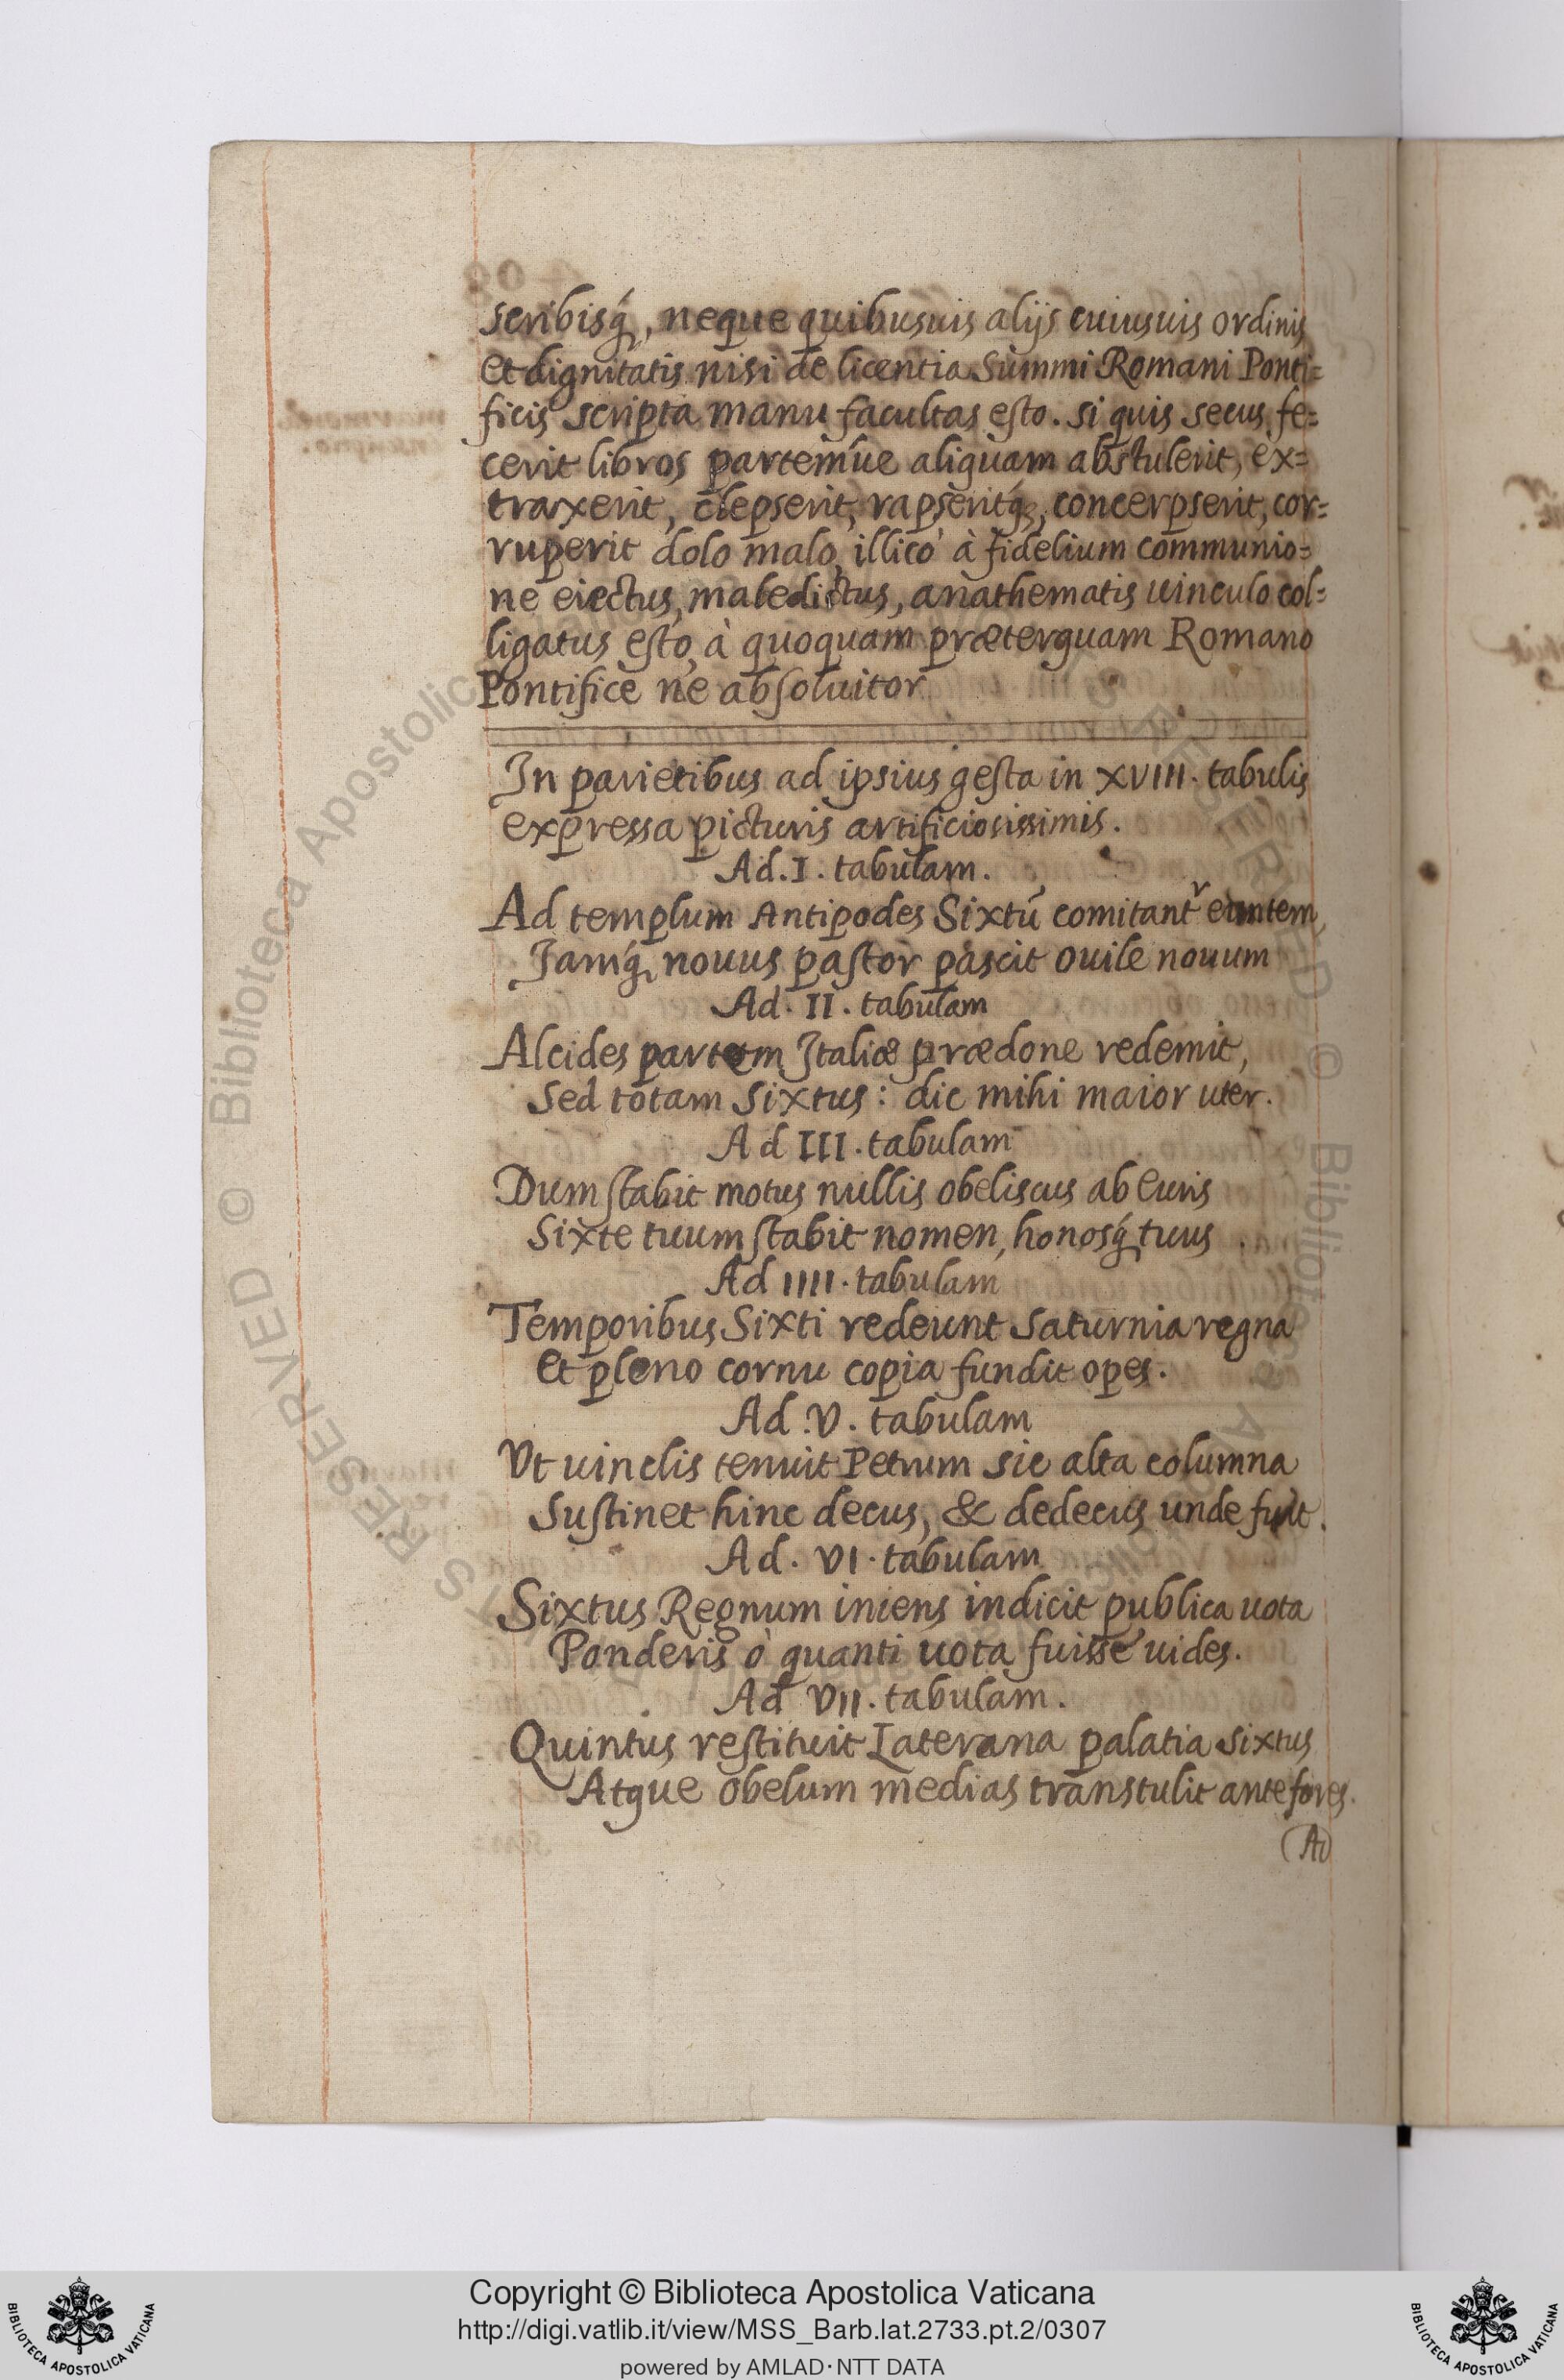 scribisq́, neque quibusuis alijs cuiusuis ordinis
et dignitatis nisi de licentia Summi Romani Ponti=
ficis scripta manu facultas esto. si quis secus fe=
cerit libros parteḿue aliquam abstulerit, ex=
traxerit, clepserit, rapseritq́, concerpserit, cor=
ruperit dolo malo, illicò à fidelium communio=
ne eiectus, maledictus, anathematis uinculo col=
ligatus esto, à quoquam præterquam Romano
Pontifice ne absoluitor
In parietibus ad ipsius gesta in XVIII. tabulis
expressa picturis artificiosissimis.
Ad. I. tabulam.
Ad templum Antipodes Sixtū comitantʳ euntem,
Jamq́ nouus pastor pascit ouile nouum
Ad. II. tabulam
Alcides partem Italiæ prædone redemit,
Sed totam Sixtus: dic mihi maior uter.
Ad III. tabulam
Dum stabit motus nullis obeliscus ab Euris
Sixte tuum stabit nomen, honosq́ tuus
Ad IIII. tabulam
Temporibus Sixti redeunt Saturnia regna
Et pleno cornu copia fundit opes.
Ad. V. tabulam
Vt uinclis tenuit Petrum sic alta columna
Sustinet hinc decus, & dedecus unde fuit.
Ad. VI. tabulam
Sixtus Regnum iniens indicit publica uota
Ponderis ò quanti uota fuisse uides.
Ad VII. tabulam.
Quintus restituit Laterana palatia Sixtus
Atque obelum medias transtulit ante fores.
Ad
© Biblioteca Apostolica
Copyright © Biblioteca Apostolica Vaticana
http://digi.vatlib.it/view/MSS_Barb.lat.2733.pt.2/0307
powered by AMLAD·NTT DATA
BIBLIOTECA APOSTOLICA VATICANA
BIBLIOTECA APOSTOLICA VATICANA